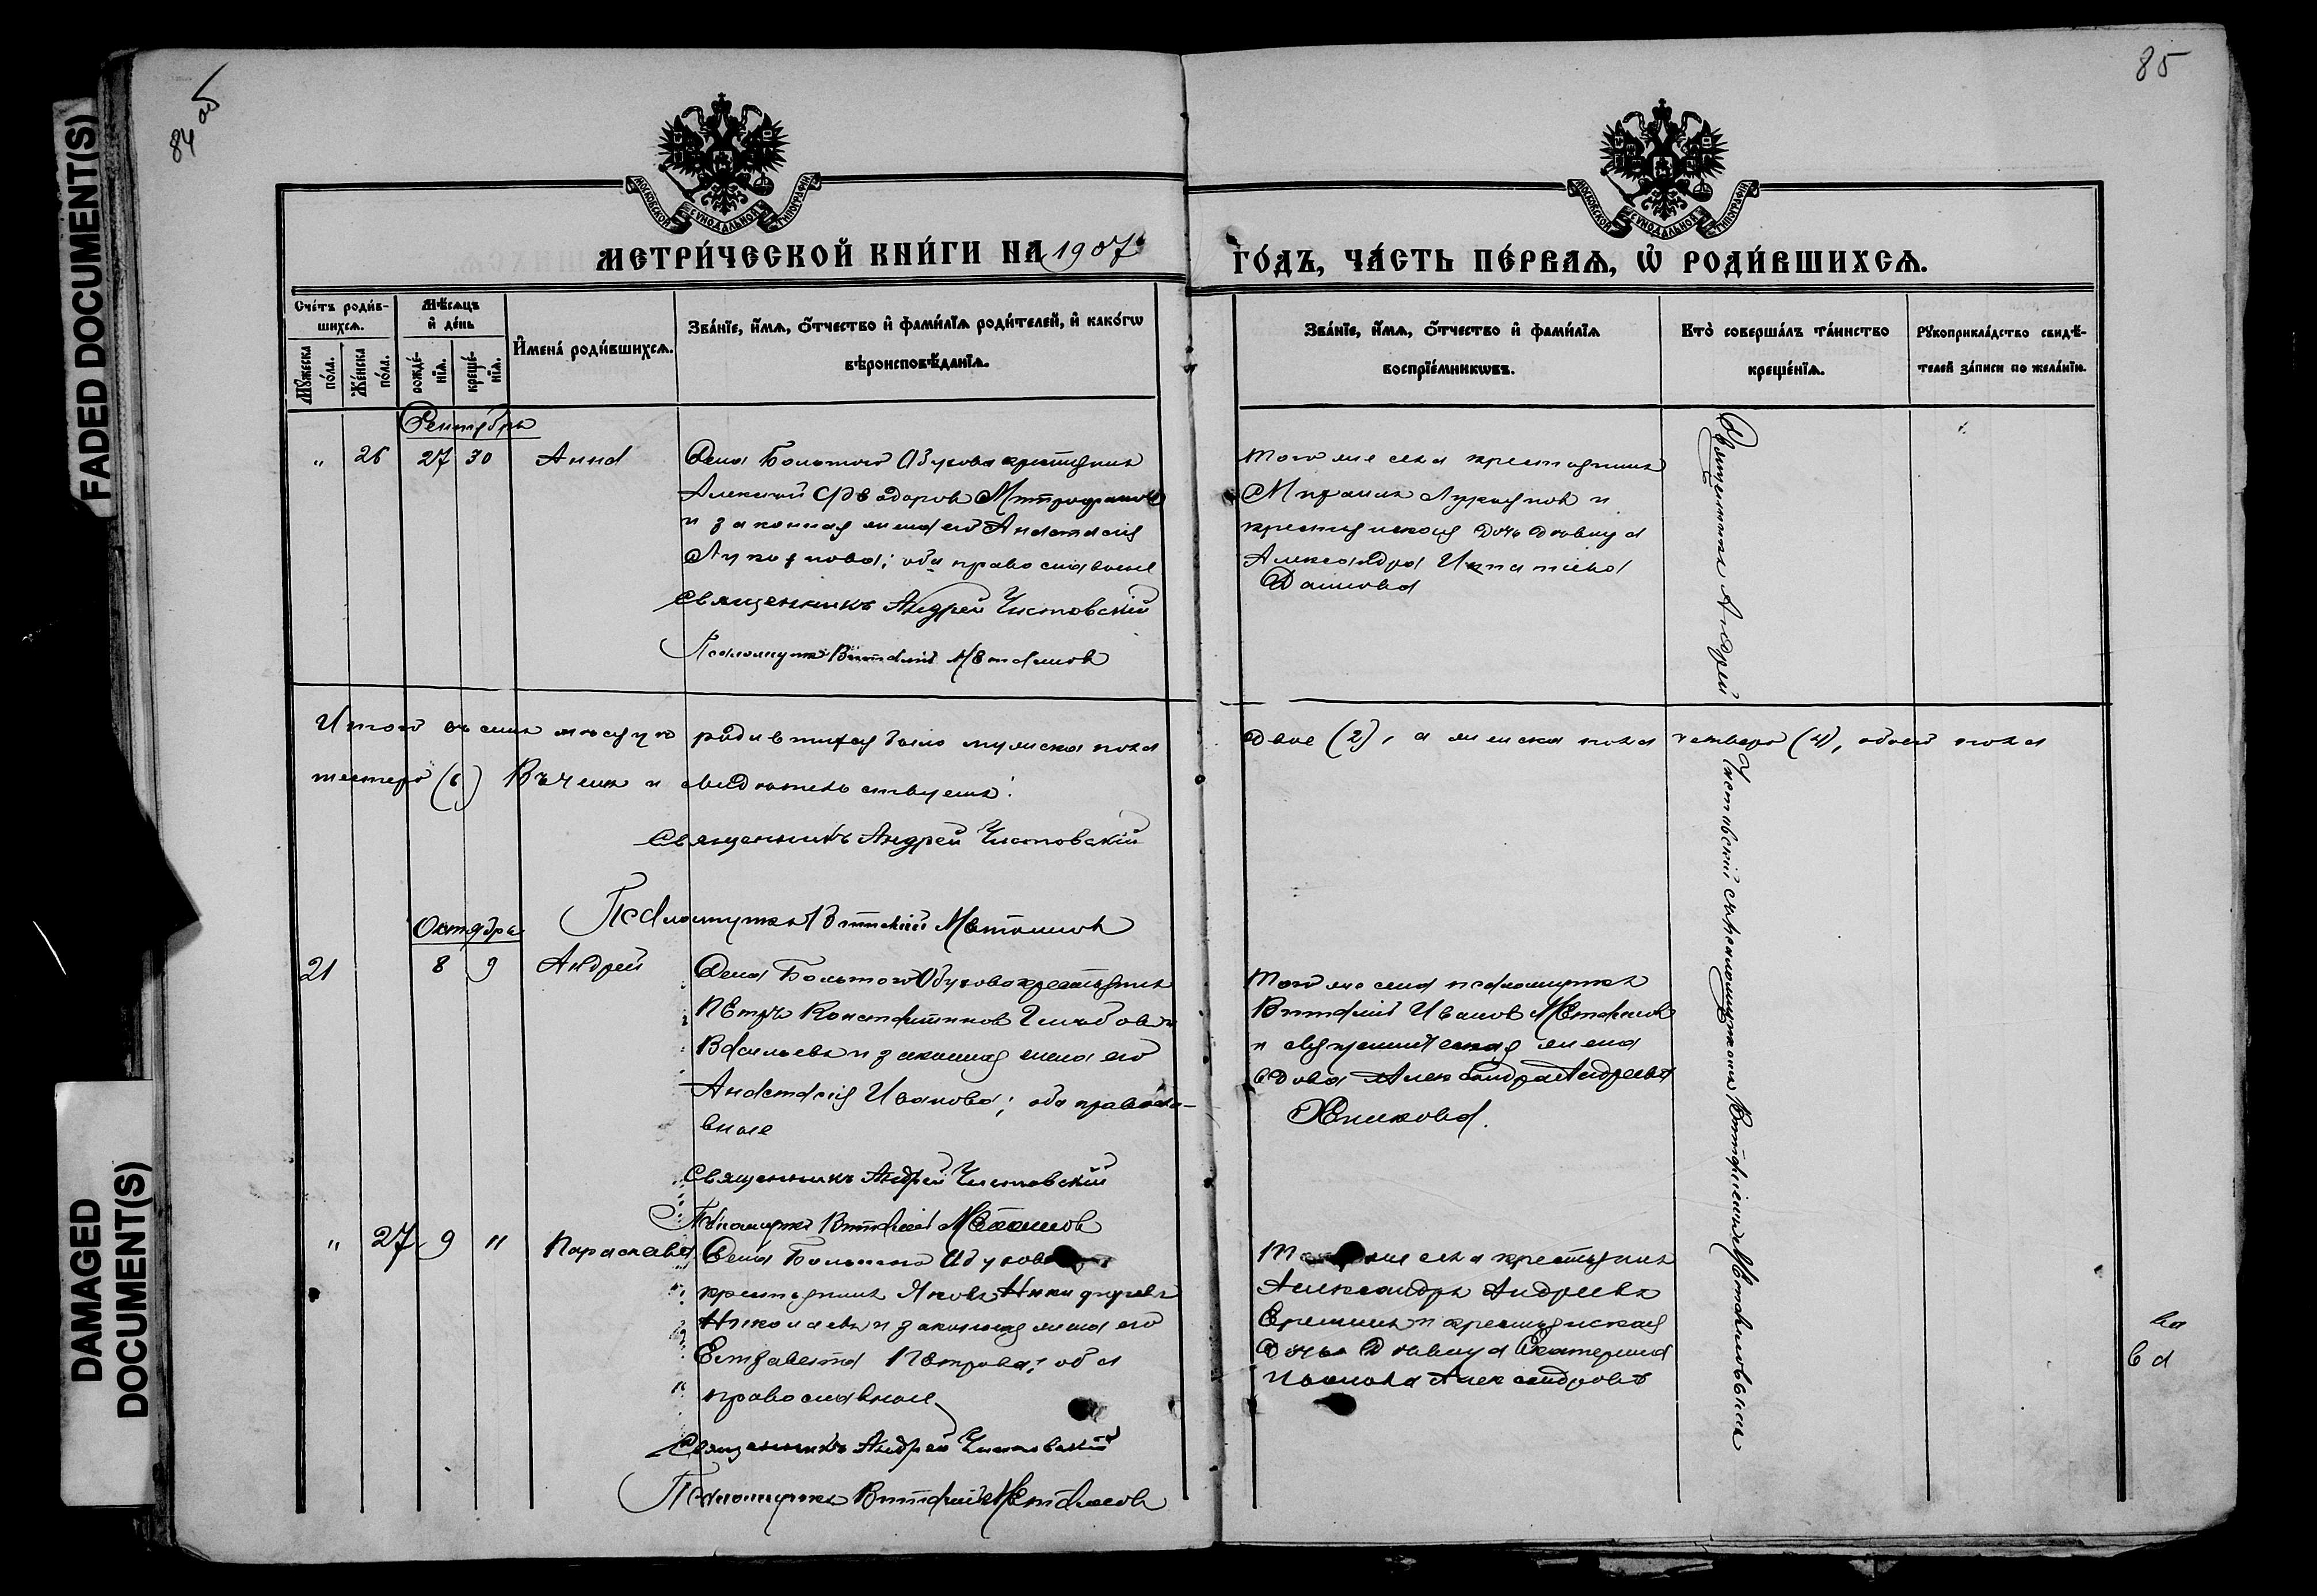 84 об
85
FADED DOCUMENT(S)
DAMAGED
DOCUMENT(S)
МОСКОВСКОЙ СѴНОДАЛЬНОЙ ТИПОГРАФІИ
МОСКОВСКОЙ СѴНОДАЛЬНОЙ ТИПОГРАФІИ
МЕТРИ́ЧЕСКОЙ КНИ́ГИ НА 1907
ГО́ДЪ, ЧА́СТЬ ПЕ́РВАѦ, Ѡ҆ РОДИ́ВШИХСѦ.
Сче́тъ роди́в-
шихсѧ.
Мꙋ́жеска по́ла.
Же́нска по́ла.
Мѣ́сѧцъ
и҆ де́нь
рожде́-
нїѧ.
креще́-
нїѧ.
И҆мена̀ роди́вшихсѧ.
Зва́нїе, и҆́мѧ, ѻ҆́тчество и҆ фами́лїѧ роди́телей, и҆ како́гѡ
вѣроисповѣ́данїѧ.
Зва́нїе, и҆́мѧ, ѻ҆́тчество и҆ фами́лїѧ
воспрїе́мникѡвъ.
Кто̀ соверша́лъ та́инство
креще́нїѧ.
Рꙋкоприкла́дство свидѣ́-
телей за́писи по жела́нїю.
Сентябрь
" 26 27 30 Анна
Села Большого Обухова крестьянинъ
Алексѣй Ѳеодоровъ Митрофановъ
и законная жена его Анастасія
; оба православные
Священникъ Андрей Чистовскій
Псаломщикъ Виталій Меташовъ
того же села крестьянинъ
Михаилъ и
крестьянская дочь дѣвица
Александра Игнатіева
Священникъ Андрей
Итого въ семъ мѣсяцѣ родившихся было мужеска пола
двое (2), а женска пола четверо (4), обоего пола
шестеро (6) Въ чемъ и свидѣтельствуемъ:
Священникъ Андрей Чистовскій
Псаломщикъ Виталій Меташовъ
Чистовскій съ псаломщикомъ Виталіемъ Меташовымъ
Октябрь
21 8 9 Андрей
Села Большого Обухова крестьянинъ
Петръ Константиновъ
Васильевъ и законная жена его
Анастасія Иванова; оба правосла-
вные
Священникъ Андрей Чистовскій
Псаломщикъ Виталій Меташовъ
Того же села псаломщикъ
Виталій Ивановъ Меташовъ
и священническая жена
вдова Александра Андреева
" 27 9 " Параскева
Села Большого Обухова
крестьянинъ Яковъ Никифоровъ
Николаевъ и законная жена его
Елизавета Петрова; оба
православные
Священникъ Андрей Чистовскій
Псаломщикъ Виталій Меташовъ
же села крестьянинъ
Александръ Андреевъ
Ереминъ и крестьянская
дочь дѣвица Екатерина
ва